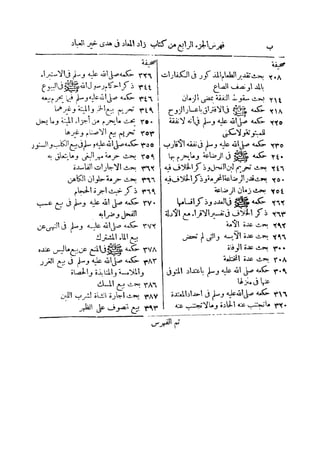 ب فهرس الجزء الرابع من كتاب زاد المعاد فى هدى خير العباد
صحيفة
٢٠٨ بحث تقدير الطعام المذكور فى الكفارات
بالمد أو نصف الصاع
٢١٤ بحث سقوط النفقة بمضى الزمان
٢١٨ حكمه ﷺ فى
٢٢٥ حكمه صلى الله عليه وسلم فى أنه لا نفقة
للمبتوتة ولا سكنى
٢٣٥ حكمه صلى الله عليه وسلم فى نفقة الأقارب
٢٤٠ حكمه ﷺ فى الرضاعة وما يحرم بها
٢٤٦ بحث تحريم لبن الفحل وذكر الخلاف فيه
٢٥٠ بحث قدر الرضاعة المحرمة وذكر الخلاف فيه
٢٥٤ بحث زمان الرضاعة
٢٦٢ حكمه ﷺ فى العدد وذكر أقسامها
٢٦٣ ذكر الخلاف فى تفسير الاقراء مع الأدلة
٢٩٢ بحث عدة الأمة
٢٩٦ بحث عدة الآيسة والتى لم تحض
٣٠٠ بحث عدة الوفاة
٣٠٨ بحث عدة المختلعة
٣٠٩ حكمه صلى الله عليه وسلم باعتداد المتوفى
عنها فى منزلها
٣١٦ حكمه صلى الله عليه وسلم فى احداد المعتدة
٣٢٠ ما تجتنب عنه الحادة وما لا تجتنب عنه
صحيفة
٣٢٦ حكمه صلى الله عليه وسلم فى الاستبراء
٣٤٤ ذكر أحكام رسول الله ﷺ فى البيوع
٣٤٦ حكمه صلى الله عليه وسلم فيما يحرم بيعه
٣٤٩ تحريم بيع الخمر والميتة وغيرهما
٣٥٠ بحث ما يحرم من أجزاء الميتة وما يحل
٣٥٣ تحريم بيع الأصنام وغيرها
حكمه ﷺ فى بيع الكلب والسنور
٣٥٩ بحث حرمة مهر البغى وما يتعلق به
بحث الاجارات الفاسدة
٣٦٦ بحث حرمة حلوان الكاهن
٣٦٩ ذكر خبث أجرة الحجام
٣٧٠ حكمه صلى الله عليه وسلم فى بيع عسب
الفحل وضرابه
٣٧٢ حكمه صلى الله عليه وسلم فى النهى عن
بيع الماء المشترك
٣٧٨ حكمه ﷺ فى المنع عن بيع ما ليس عنده
٣٨٣ حكمه صلى الله عليه وسلم فى بيع الغرر
والملامسة والمنابذة والحصاة
٣٨٦ بحث بيع المسك
٣٨٧ بحث اجارة الشاة لشرب اللبن
٣٩٣ بيع الصوف على الظهر
تم الفهرس